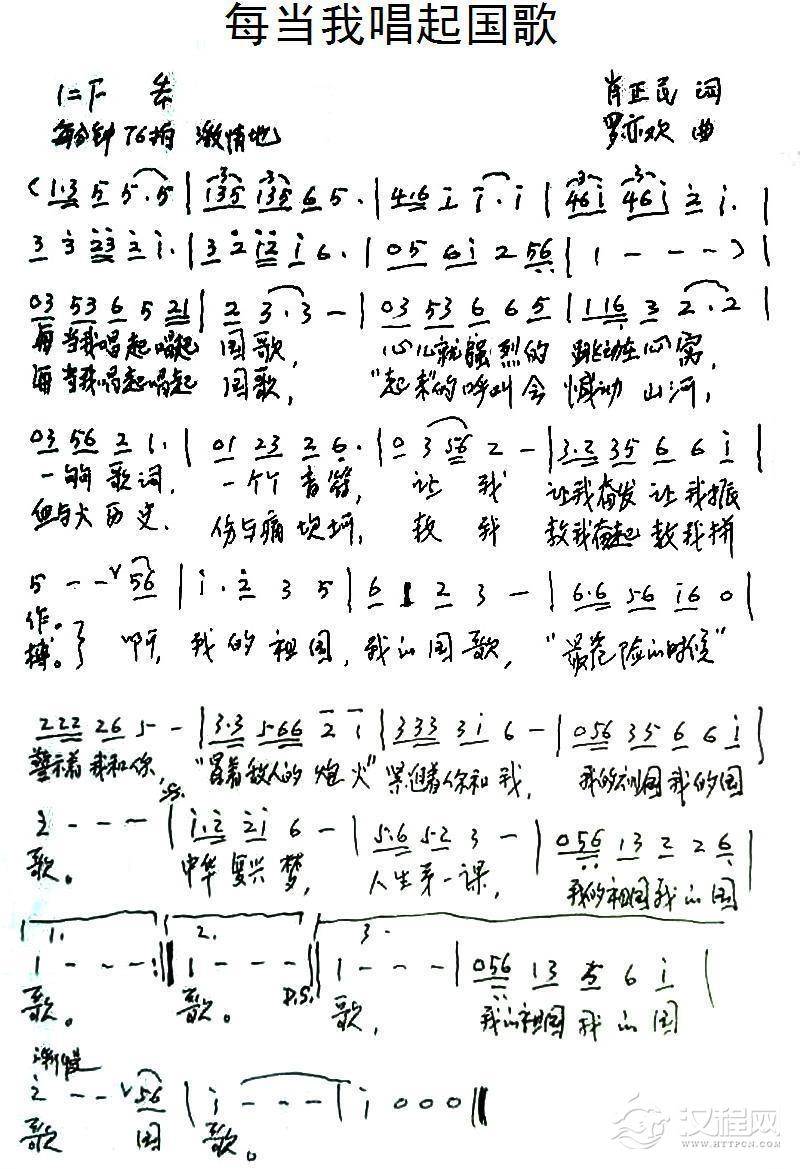 每当我唱起国歌
1=F 4/4 肖正民 词
每分钟76拍 激情地 罗亦欢 曲
(1·3 5 5·5 | 135 135 6 5· | 4·6 i i·i | 46i 46i 2 i· |
3 3 23 2 i· | 3 2 i2 i 6· | 05 6i 2 56 | 1 - - - ) |
03 53 6 5 21 | 2 3·3 - | 03 53 6 6 5 | 1 16 3 2·2 |
每当我唱起唱起 国歌, 心儿就强烈的 跳动在心窝,
每当我唱起唱起 国歌, "起来"的呼叫会 憾动 山河,
03 56 2 1· | 01 23 2 6· | 0 3 56 2 - | 3·2 35 6 6 i |
一句句 歌词, 一个个 音符, 让 我 让我奋发 让我振
血与火 历史, 伤与痛 坎坷, 教 我 教我奋起 教我拼
5 - - ∨ 56 | i·2 3 5 | 6 1 2 3 - | 6·6 56 i6 0 |
作。
搏。} 啊, 我的祖国, 我的国歌, "最危险的时候"
222 26 5 - | 3·3 566 2 i | 333 3i 6 - | 056 35 6 6 i |
警示着 我和你, "冒着敌人的 炮火" 紧迫着你和我, 我的祖国我的国
2 - - - | i·2 2i 6 - | 5·6 5·2 3 - | 056 13 2 2 6 |
歌。 中华 复兴 梦, 人生第一课, 我的祖国我的国
1. 2. 3.
1 - - - :‖ 1 - - - ‖ 1 - - - | 056 13 5 6 i |
歌。 歌。 D.S. 歌, 我的祖国 我的国
渐慢
2 - - ∨ 56 | i - - - | i 0 0 0 ‖
歌 国 歌。
汉程网
WWW.HTTPCN.COM